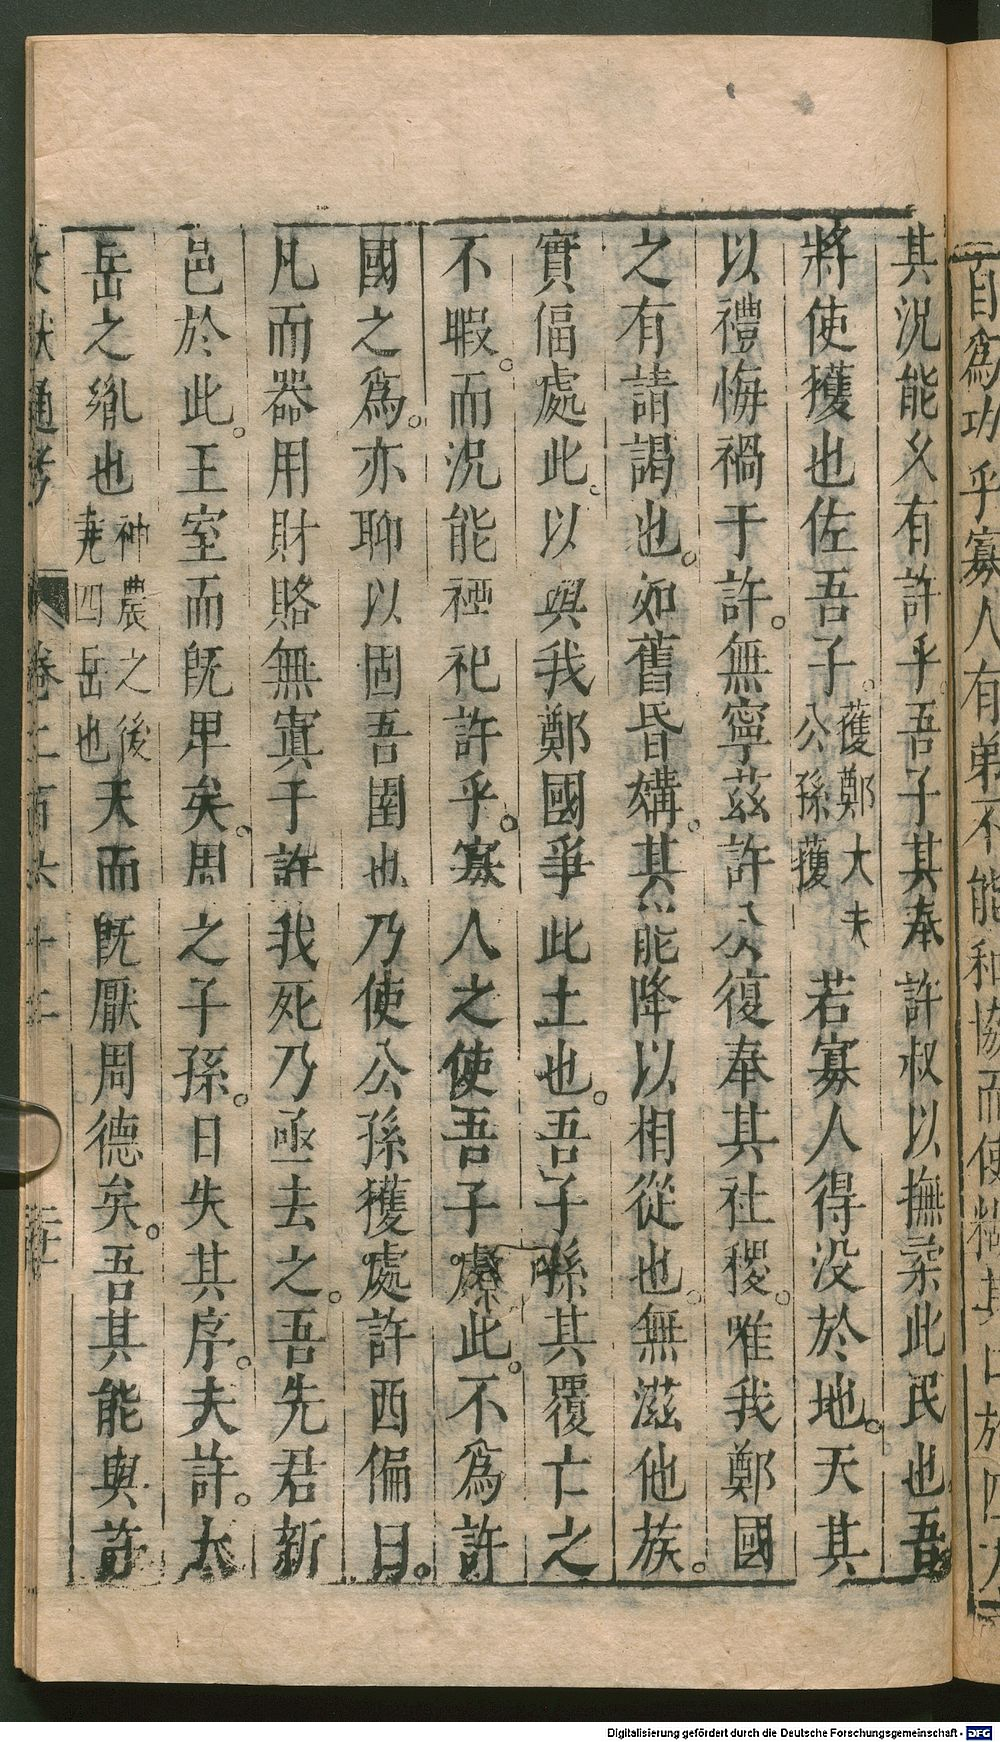 自爲功乎寡人有弟不能和協而使糊其口於四方
其況能乆有許乎吾子其奉許叔以撫柔此民也吾
將使獲也佐吾子。獲鄭大夫公孫獲若寡人得沒於地。天其
以禮悔禍于許。無寧茲許公復奉其社稷。唯我鄭國
之有請謁也。如舊昏媾。其能降以相從也。無滋他族。
實偪處此。以與我鄭國爭此土也。吾子孫其覆亡之
不暇。而況能禋祀許乎。寡人之使吾子處此。不爲許
國之爲。亦聊以固吾圉也乃使公孫獲處許西偏曰。
凡而器用財賂無寘于許我死乃亟去之。吾先君新
邑於此。王室而旣卑矣。周之子孫。日失其序。夫許。大
岳之胤也神農之後堯四岳也天而旣厭周德矣。吾其能與許
文獻通考 卷二百六十二
Digitalisierung gefördert durch die Deutsche Forschungsgemeinschaft - DFG